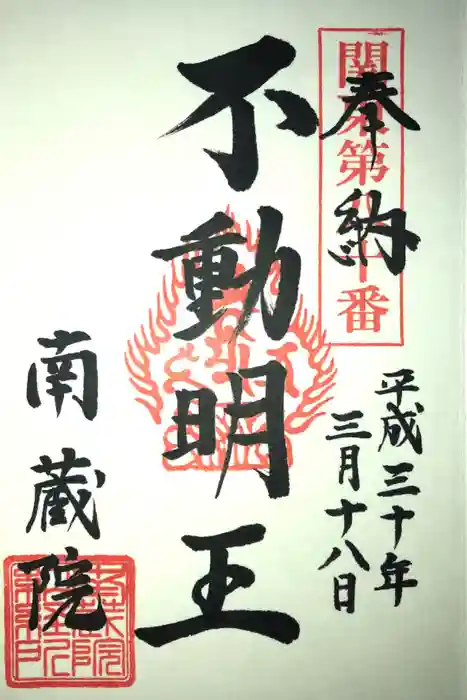 奉納
関東第八十番
平成三十年
三月十八日
不動明王
南蔵院